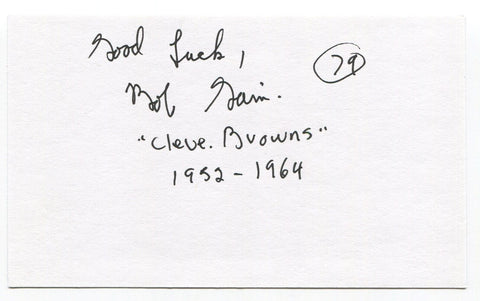 Good Luck,
79
Bob Gain.
"Cleve. Browns"
1952 - 1964